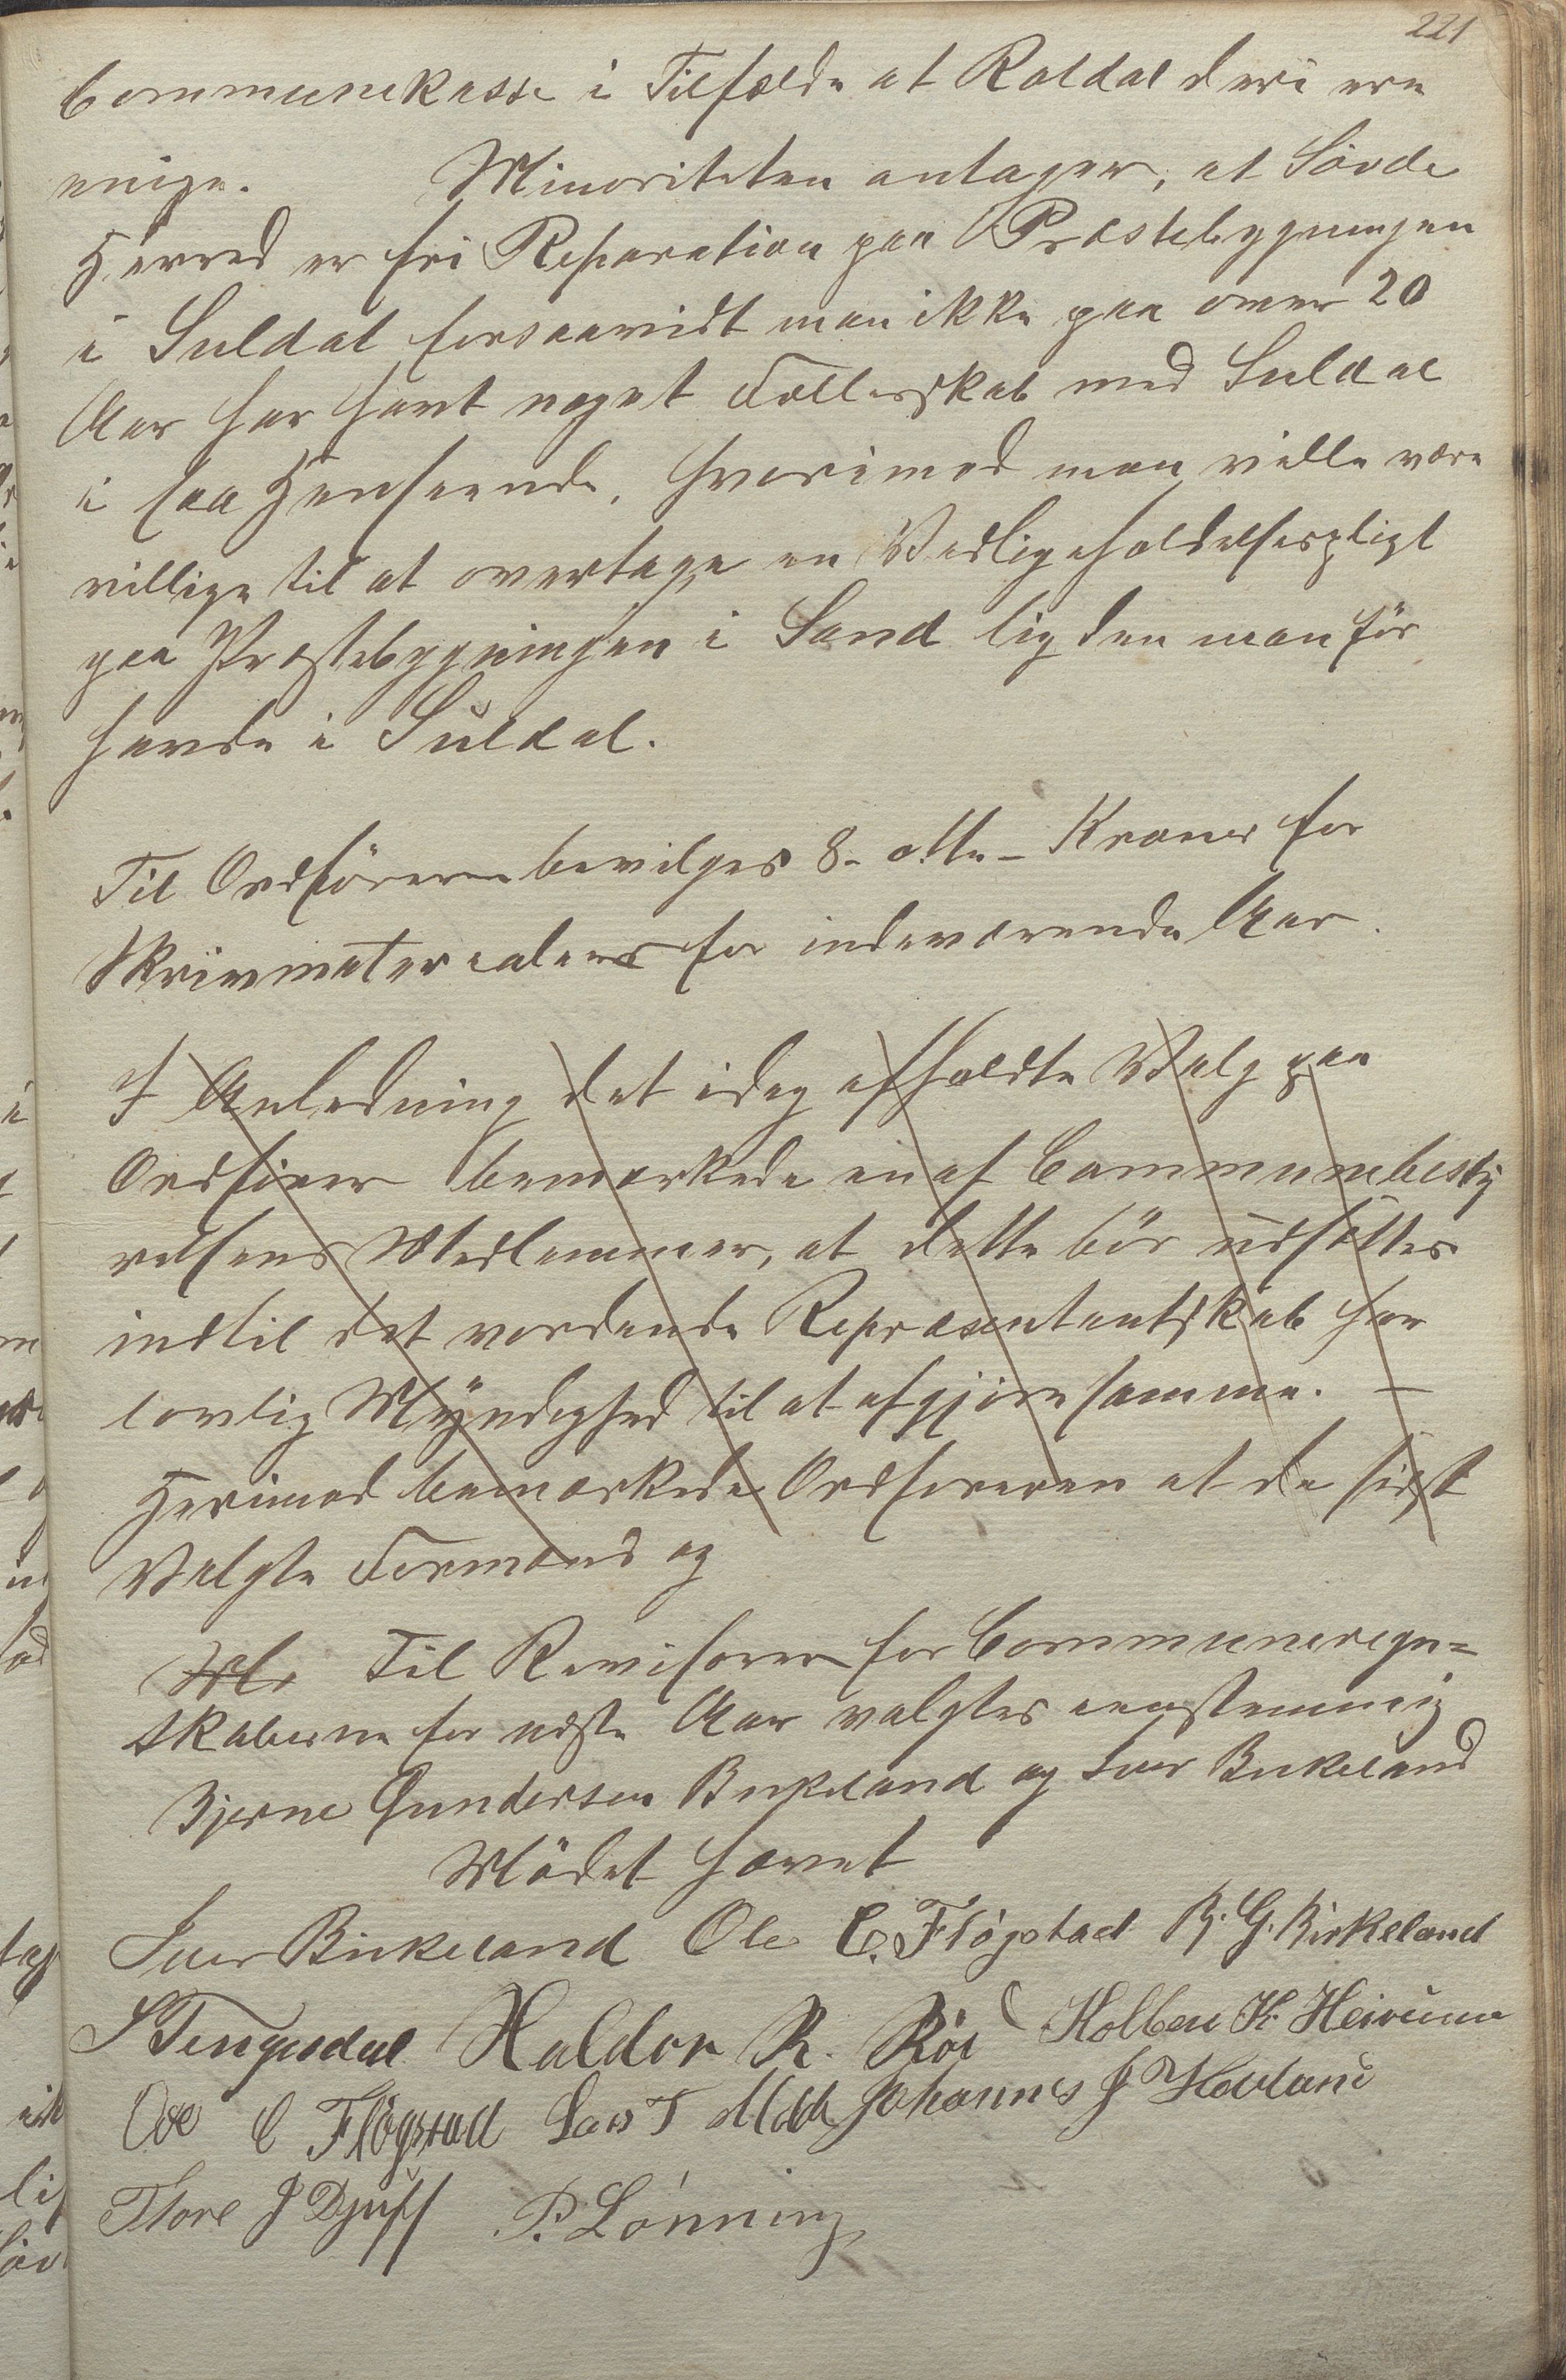 221
Communekasse i Tilfælde at Røldal deri ere
enige. Minoriteten antager, at Søvde
Herred er fri Reparation paa Præstebygningen
i Suldal forsaavidt man ikke paa over 20
Aar har havt noget Fælleskab med Suldal
i saa Henseende, hvorimod man ville være
villige til at overtage en Vedligeholdelsespligt
paa Præstebygningen i Sand lig den man før
havde i Suldal.
Til Ordføreren bevilges 8 - otte - Kroner for
Skrivmaterealeer for indeværende Aar.
I Anledning det idag afholdte Valg paa
Ordfører bemærkede en af Communebesty
relsens Medlemmer, at dette bør udsættes
indtil det vordende Repræsentantskab har
lovlig Myndighed til at afgjøre samme. —
Herimod bemærkede Ordføreren at de sidst
Valgte Formænd og
Til Revisorer for Communeregn=
skaberne for næste Aar valgtes eenstemmig
Bjerne Gundersen Birkeland og Iver Birkeland
Mödet hævet
Iver Birkeland Ole C. Flögstad B. G. Birkeland
S Tengesdal Haldor R. Röe Kolben K. Heivum
Ove C Flögstad Lars T Johannes J Hovland
Tore J Djuff P. Lönning